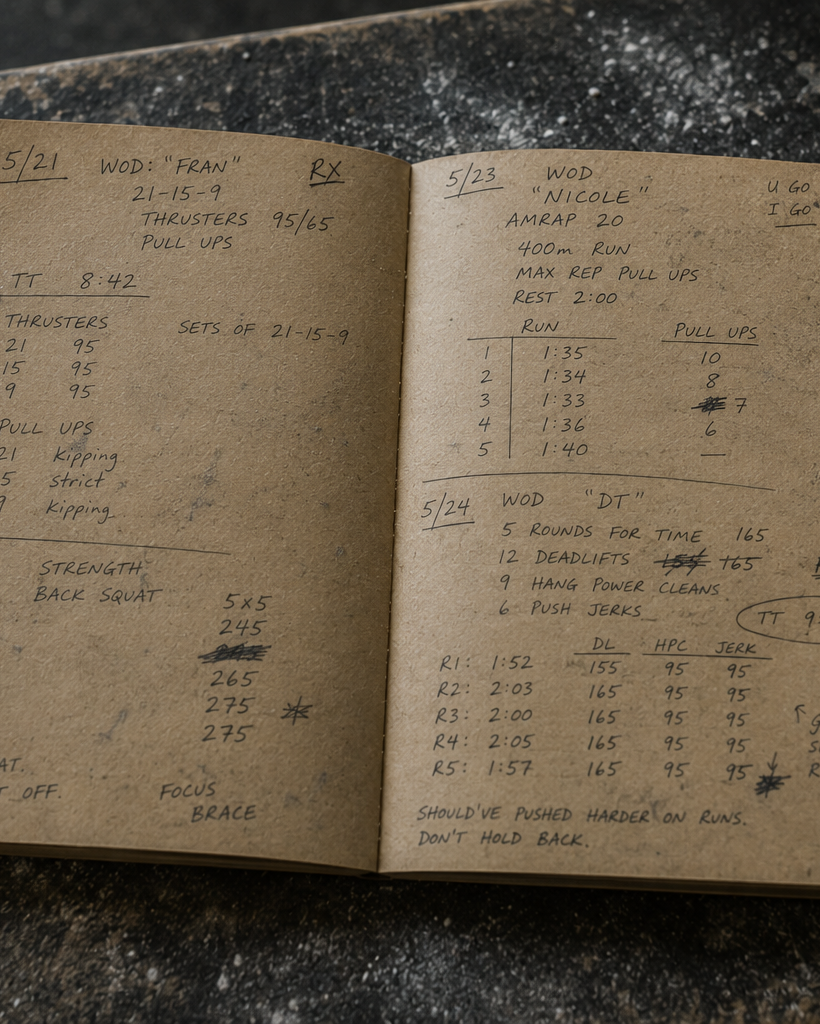 5/21 WOD: "FRAN" RX
21-15-9
THRUSTERS 95/65
PULL UPS
TT 8:42
THRUSTERS SETS OF 21-15-9
21 95
15 95
9 95
PULL UPS
21 Kipping
5 Strict
9 Kipping
STRENGTH
BACK SQUAT 5x5
245
265
275
275
AT.
T OFF. FOCUS
BRACE
5/23 WOD U GO
"NICOLE" I GO
AMRAP 20
400m RUN
MAX REP PULL UPS
REST 2:00
RUN PULL UPS
1 1:35 10
2 1:34 8
3 1:33 7
4 1:36 6
5 1:40 —
5/24 WOD "DT"
5 ROUNDS FOR TIME 165
12 DEADLIFTS 155 165
9 HANG POWER CLEANS
6 PUSH JERKS TT 9:
DL HPC JERK
R1: 1:52 155 95 95
R2: 2:03 165 95 95
R3: 2:00 165 95 95
R4: 2:05 165 95 95
R5: 1:57 165 95 95
SHOULD'VE PUSHED HARDER ON RUNS.
DON'T HOLD BACK.